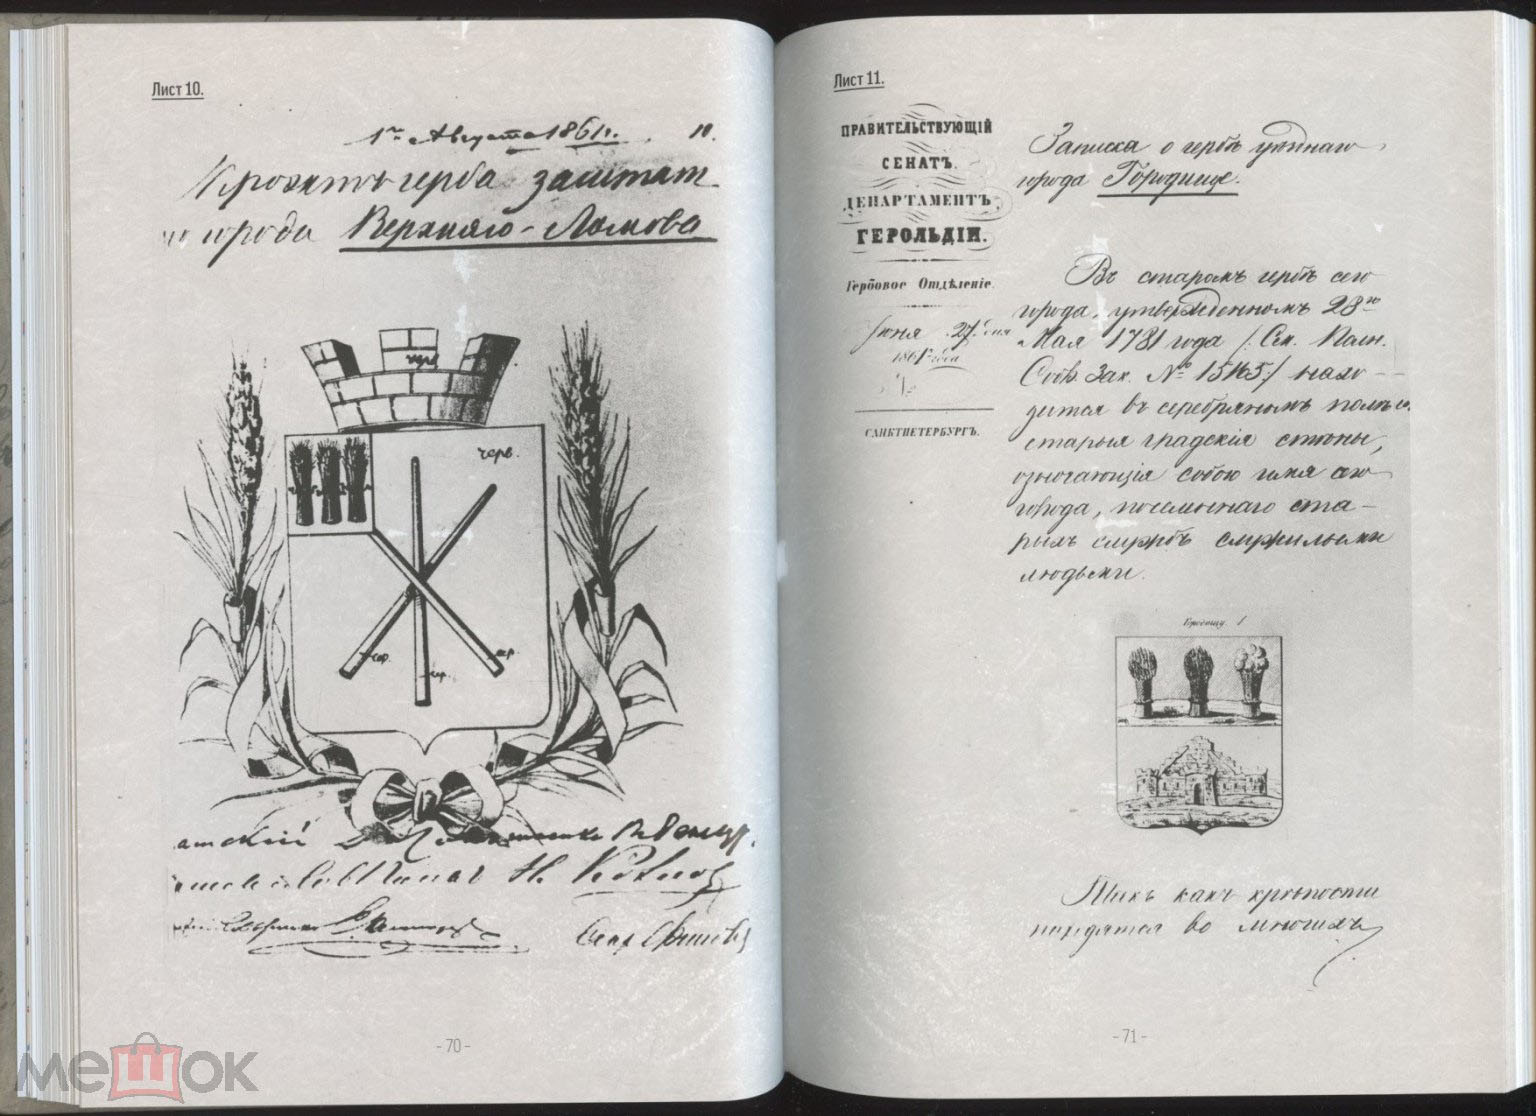 Лист 10.
1го Августа 1861 г. 10.
Проэктъ герба заштат-
города Верхняго-Ломова
черв.
черв.
сер.
сер.
сер.
- 70 -
Лист 11.
ПРАВИТЕЛЬСТВУЮЩІЙ
СЕНАТЪ.
ДЕПАРТАМЕНТЪ
ГЕРОЛЬДІИ.
Гербовое Отдѣленіе.
Іюня 27 дня
1861 года
САНКТПЕТЕРБУРГЪ.
Записка о гербѣ уѣзднаго
города Городище.
Въ старомъ гербѣ сего
города, утвержденномъ 28го
Мая 1781 года /: См. Полн.
Собр. Зак. № 15165:/ нахо-
дится въ серебряномъ полѣ
старыя градскія стѣны,
означающія собою имя сего
города, поселеннаго ста-
рыхъ службъ служилыми
людьми.
Городищу. 1
Такъ какъ крѣпости
находятся во многихъ
- 71 -
мешок